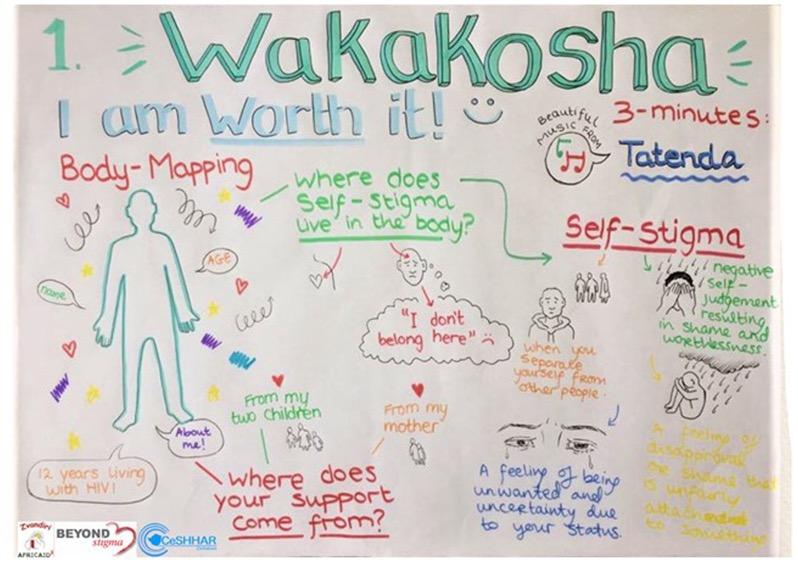 1. Wakakosha
I am Worth it!
Beautiful
Music From
3-minutes:
Tatenda
Body-Mapping
Where does
Self-stigma
Live in the body?
Self-stigma
AGE
name
"I don't
belong here"
when you
separate
yourself from
other people.
negative
self-
judgement
resulting
in shame and
worthlessness.
From my
two children
From my
mother
About
me!
12 years living
with HIV!
Where does
your support
come from?
A feeling of being
unwanted and
uncertainty due
to your status.
A feeling of
disapproval
or shame that
is unfairly
to something
Zvandiri
AFRICAID
BEYOND
stigma
CeSHHAR